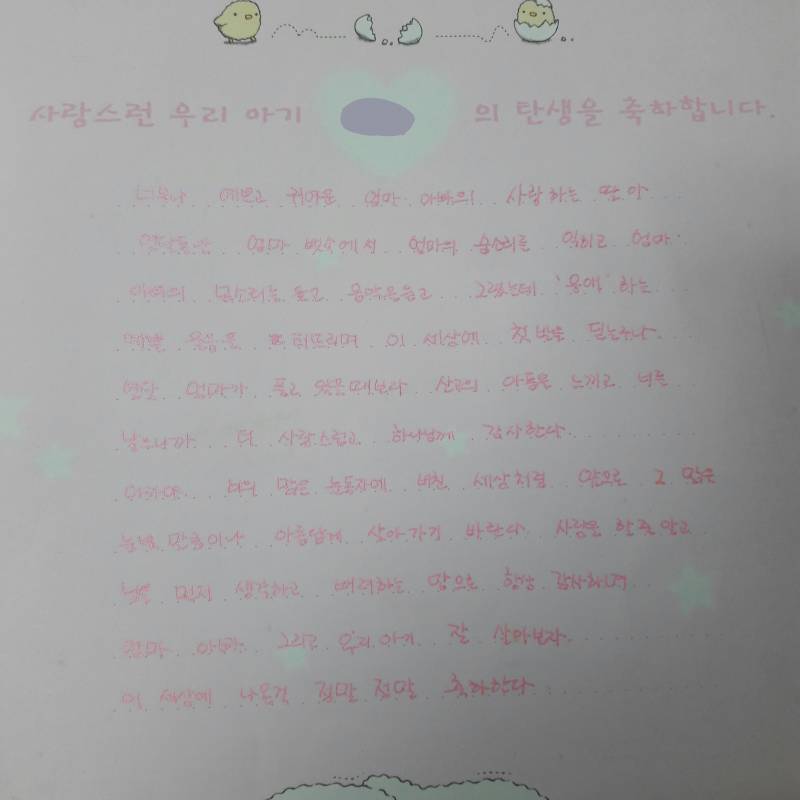 사랑스런 우리 아기 의 탄생을 축하합니다.
너무나 예쁘고 귀여운 엄마 아빠의 사랑하는 딸아
열달동안 엄마 뱃속에서 엄마의 숨소리를 익히고 엄마
아빠의 목소리를 듣고 음악을 듣고 그랬는데 '응애' 하는
울음을 터뜨리며 이 세상에 첫발을 딛는구나.
열달 엄마가 품고 있을때보다 산고의 아픔을 느끼고 너를
낳으니까 더 사랑스럽고 하나님께 감사한다.
아가야 너의 맑은 눈동자에 비친 세상처럼 앞으로 그 맑은
눈빛 만큼이나 아름답게 살아가기 바란다. 사랑을 할줄 알고
남을 먼저 생각하고 배려하는 맘으로 항상 감사하며
엄마 아빠 그리고 우리아기 잘 살아보자.
이 세상에 나온걸 정말 정말 축하한다